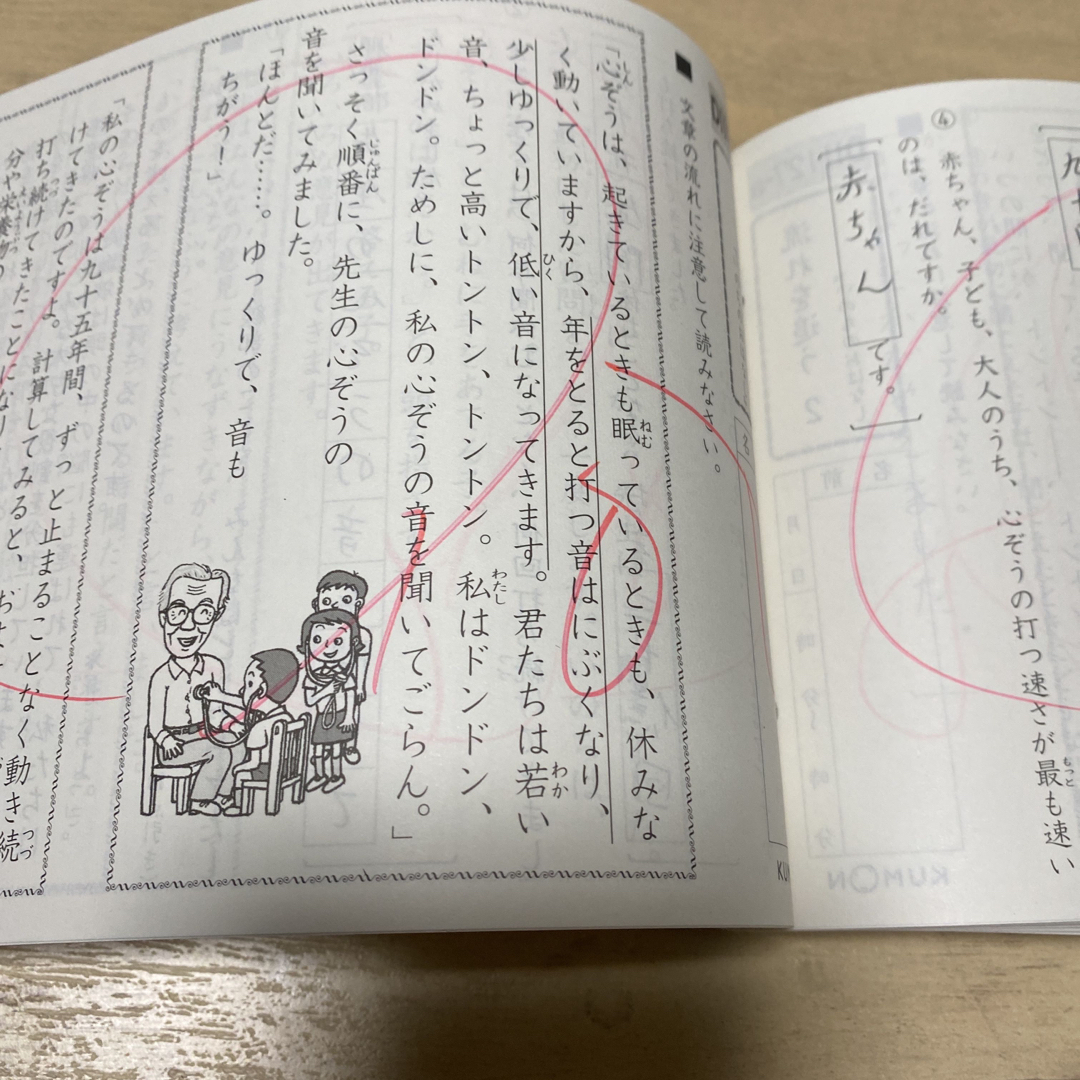 ④ 赤ちゃん、子ども、大人のうち、心ぞうの打つ速さが最も速い
のは、だれですか。
赤ちゃん です。
■ 文章の流れに注意して読みなさい。
「心ぞうは、起きているときも眠っているときも、休みな
く動いていますから、年をとると打つ音はにぶくなり、
少しゆっくりで、低い音になってきます。君たちは若い
音、ちょっと高いトントン、トントン。私はドンドン、
ドンドン。ためしに、私の心ぞうの音を聞いてごらん。」
さっそく順番に、先生の心ぞうの
音を聞いてみました。
「ほんとだ……。ゆっくりで、音も
ちがう！」
「私の心ぞうは九十五年間、ずっと止まることなく動き続
けてきたのですよ。計算してみると、
打ち続けてきたことになり
分や栄養物
KUMON